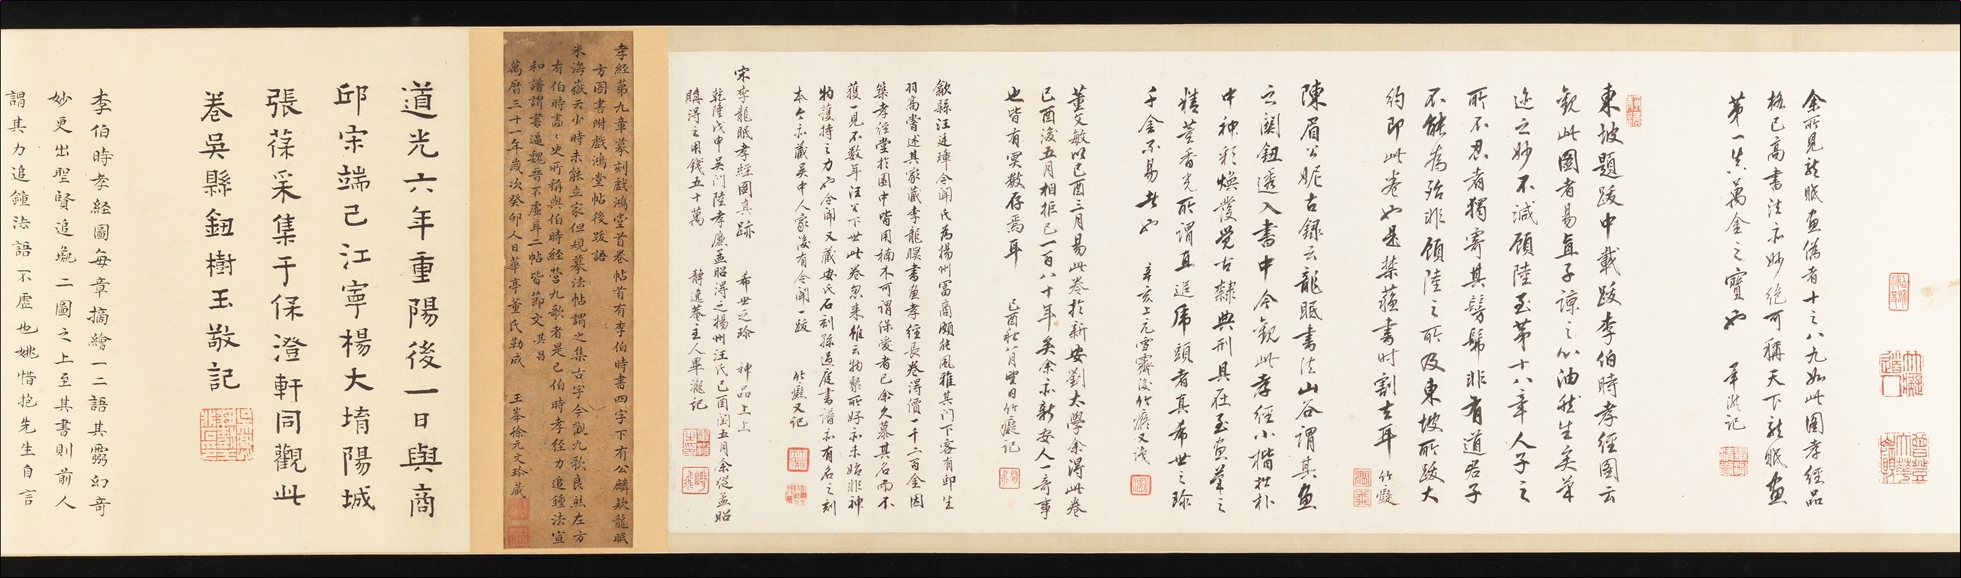 余所見龍眠畫偽者十之八九如此圖孝經品
格已高書法亦妙絕可稱天下龍眠畫
第一生萬金之寶也 畢瀧記
東坡題跋中載跋李伯時孝經圖云
觀此圖者易直子諒之心油然生矣筆
迹之妙不減顧陸至第十八章人子之
所不忍者獨寄其髣髴非有道君子
不能為殆非顧陸之所及東坡所跋大
約即此卷也是禁蘓書时割去耳 竹癡
陳眉公妮古錄云龍眠書法山谷謂其畫
之關鈕透入書中今觀此孝經小楷拙朴
中神彩煥發覺古隸典刑具在至畫筆之
精芸香光所謂直送虎頭者真希世之珍
千金不易者也 辛亥上元雪霽後竹癡又識
董文敏以己酉三月易此卷於新安劉太學余得此卷
己酉後五月相拒已一百八十年矣余亦新安人一奇事
也皆有冥數存焉耳 己酉秋八月望日竹癡記
歙縣汪廷璋令聞氏為揚州冨商頗能風雅其门下客有邱生
羽高嘗述其家藏李龍瞑書画孝經長卷得價一千二百金因
築孝經堂於園中皆用楠木可謂保愛者已余久慕其名而不
獲一見不数年汪公下世此卷忽来雖云物聚所好亦未始非神
物護持之力也令聞又藏安氏石刻孫過庭書譜亦有名之刻
本今亦藏吳中人家後有令聞一跋 竹癡又记
宋李龍眠孝經圖真跡 希世之珍 神品上上
乾隆戊申吳门陸孝廉孟昭得之揚州汪氏己酉閏五月余從孟昭
購得之用錢五十萬 靜逸菴主人畢瀧记
孝經第九章摹刻戲鴻堂首卷帖首有李伯時書四字下有公麟欵龍眠
方圖書附戲鴻堂帖後跋語
米海嶽云少時未能立家但規摹法帖謂之集古字今觀九歌良然左方
有伯時畫畫史所稱與伯時經營九歌者是已伯時孝经力追鍾法宣
和譜謂書逼魏晉不虛耳二帖皆節文其昌
萬曆三十一年歲次癸卯人日華亭董氏勒成 玉峯徐元文珍藏
道光六年重陽後一日與商
邱宋端己江寧楊大堉陽城
張葆采集于保澄軒同觀此
卷吳縣鈕樹玉敬記
李伯時孝经圖每章摘繪一二語其霧幻奇
妙更出聖賢追
二圖之上至其書則前人
謂其力追鍾法語不虛也姚惜抱先生自言